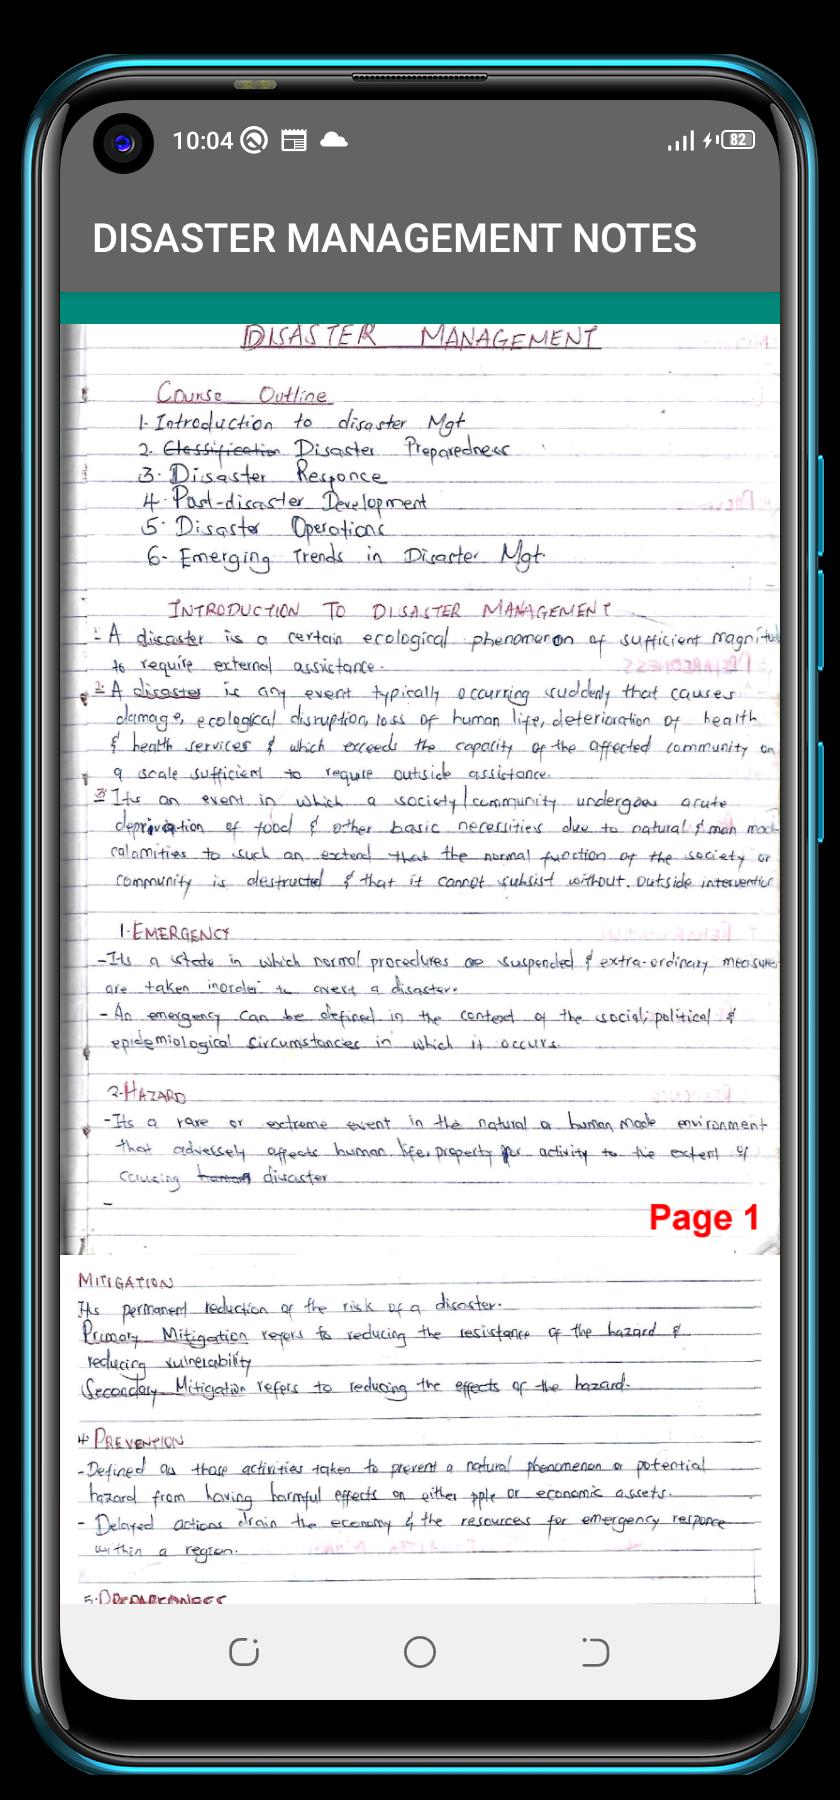 10:04
82
DISASTER MANAGEMENT NOTES
DISASTER MANAGEMENT
Course Outline
1. Introduction to disaster Mgt
2. Classification Disaster Preparedness
3. Disaster Responce
4. Post-disaster Development
5. Disaster Operations
6- Emerging Trends in Disaster Mgt.
INTRODUCTION TO DISASTER MANAGEMENT
1- A disaster is a certain ecological phenomenon of sufficient magnitud
to require external assistance.
2- A disaster is any event typically occurring suddenly that causes
damage, ecological disruption, loss of human life, deterioration of health
& health services & which exceeds the capacity of the affected community on
a scale sufficient to require outside assistance.
3- Its an event in which a society/community undergoes acute
deprivation of food & other basic necessities due to natural & man made
calamities to such an extend that the normal function of the society or
community is destructed & that it cannot subsist without outside intervention
1. EMERGENCY
- Its a state in which normal procedures are suspended & extra-ordinary measures
are taken inorder to avert a disaster.
- An emergency can be defined in the context of the social, political &
epidemiological circumstances in which it occurs.
2. HAZARD
- Its a rare or extreme event in the natural or human made environment
that adversely affects human life, property or activity to the extent of
causing human disaster
-
Page 1
MITIGATION
Its permanent reduction of the risk of a disaster.
Primary Mitigation refers to reducing the resistance of the hazard &
reducing vulnerability
Secondary Mitigation refers to reducing the effects of the hazard.
4 PREVENTION
- Defined as those activities taken to prevent a natural phenomenon or potential
hazard from having harmful effects on either pple or economic assets.
- Delayed actions drain the economy & the resources for emergency responce
within a region.
5. PREPAREDNESS